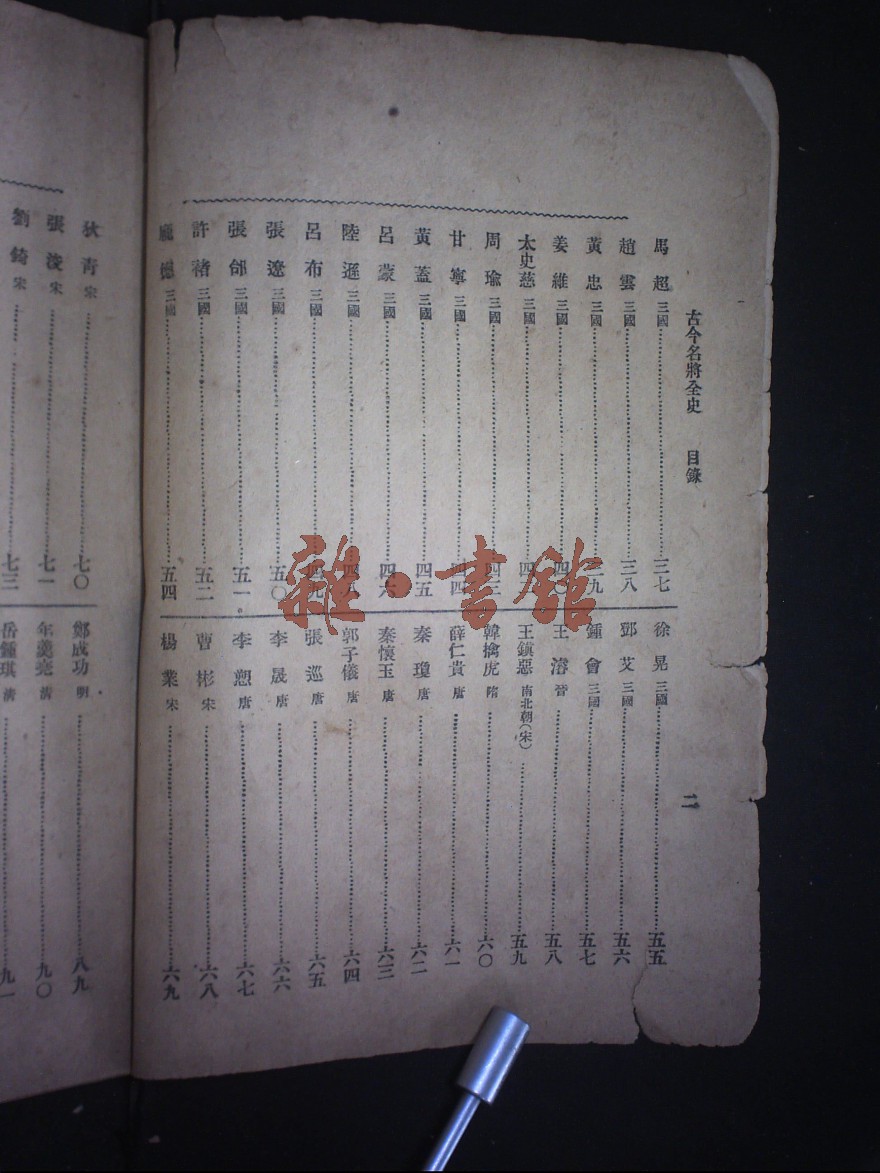 古今名將全史 目錄 二
馬超 三國 三七
趙雲 三國 三八
黃忠 三國 三九
姜維 三國 四〇
太史慈 三國 四
周瑜 三國 四三
甘寧 三國 四四
黃蓋 三國 四五
呂蒙 三國 四六
陸遜 三國 四八
呂布 三國 四九
張遼 三國 五〇
張郃 三國 五一
許褚 三國 五二
龐德 三國 五四
徐晃 三國 五五
鄧艾 三國 五六
鍾會 三國 五七
王濬 晉 五八
王鎮惡 南北朝(宋) 五九
韓擒虎 隋 六〇
薛仁貴 唐 六一
秦瓊 唐 六二
秦懷玉 唐 六三
郭子儀 唐 六四
張巡 唐 六五
李晟 唐 六六
李愬 唐 六七
曹彬 宋 六八
楊業 宋 六九
狄青 宋 七〇
張浚 宋 七一
劉錡 宋 七三
鄭成功 明 八九
年羹堯 清 九〇
岳鍾琪 清 九一
雜·書館